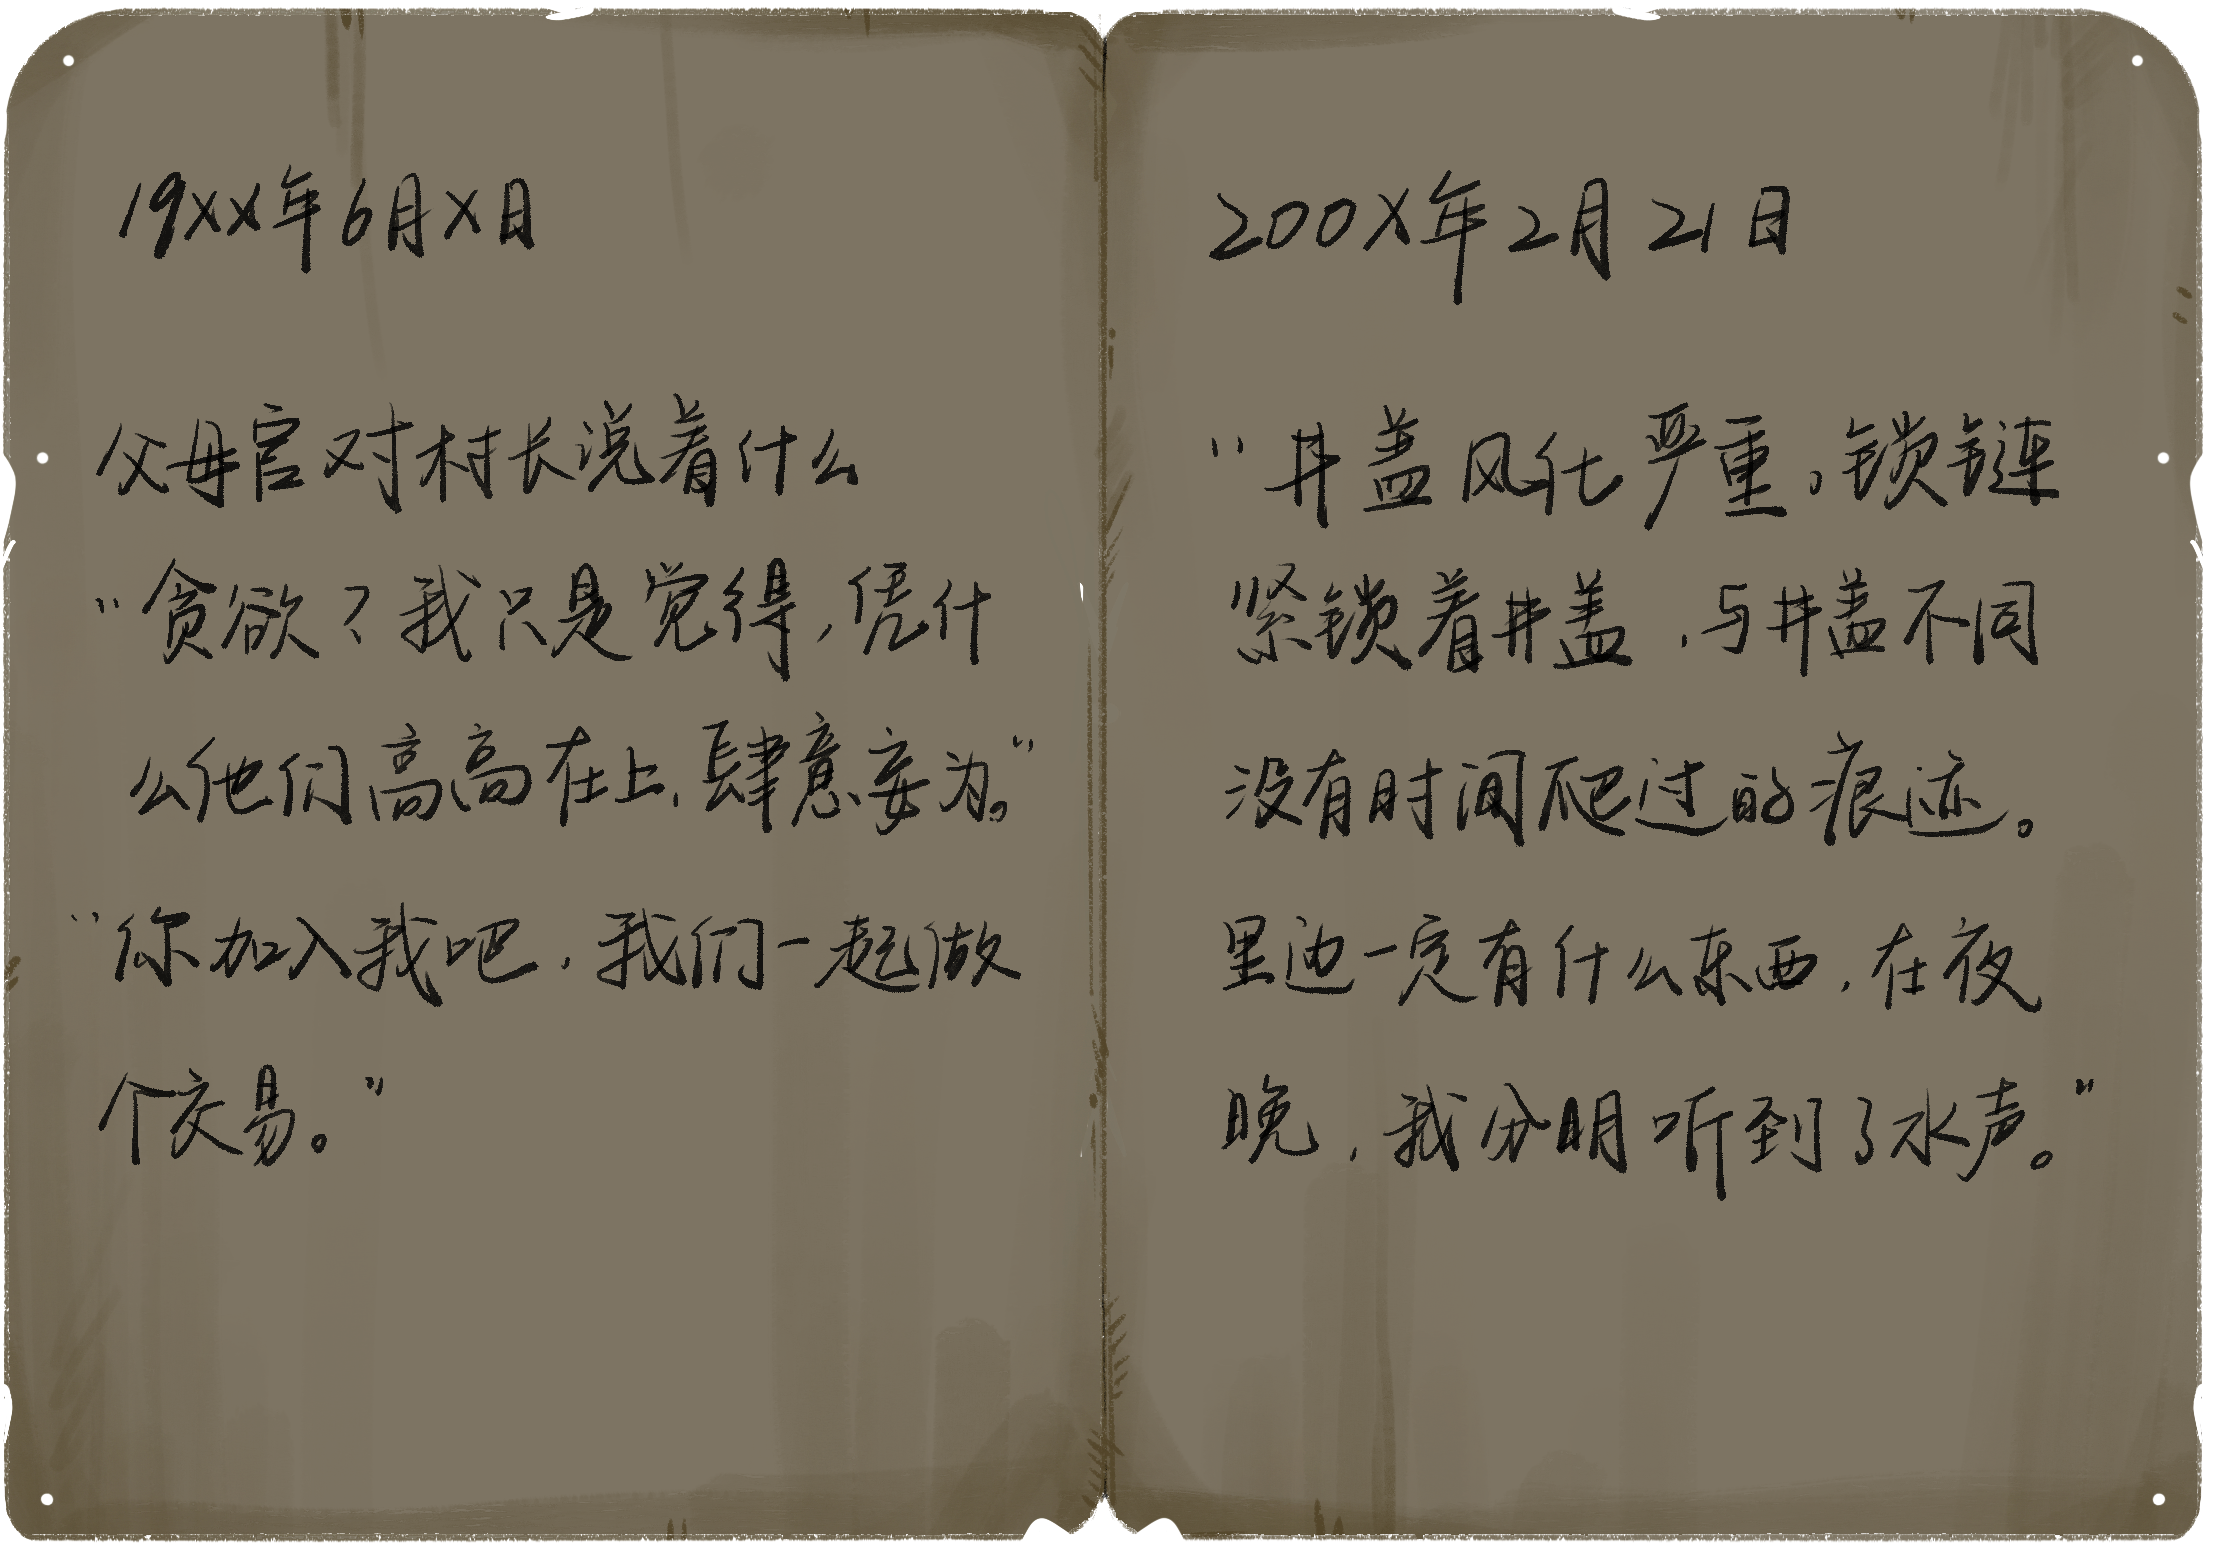 19XX年6月X日
父母官对村长说着什么
“贪欲？我只是觉得，凭什
么他们高高在上，肆意妄为。”
“你加入我吧，我们一起做
个交易。”
200X年2月21日
“井盖风化严重。锁链
紧锁着井盖，与井盖不同
没有时间爬过的痕迹。
里边一定有什么东西，在夜
晚，我分明听到了水声。”